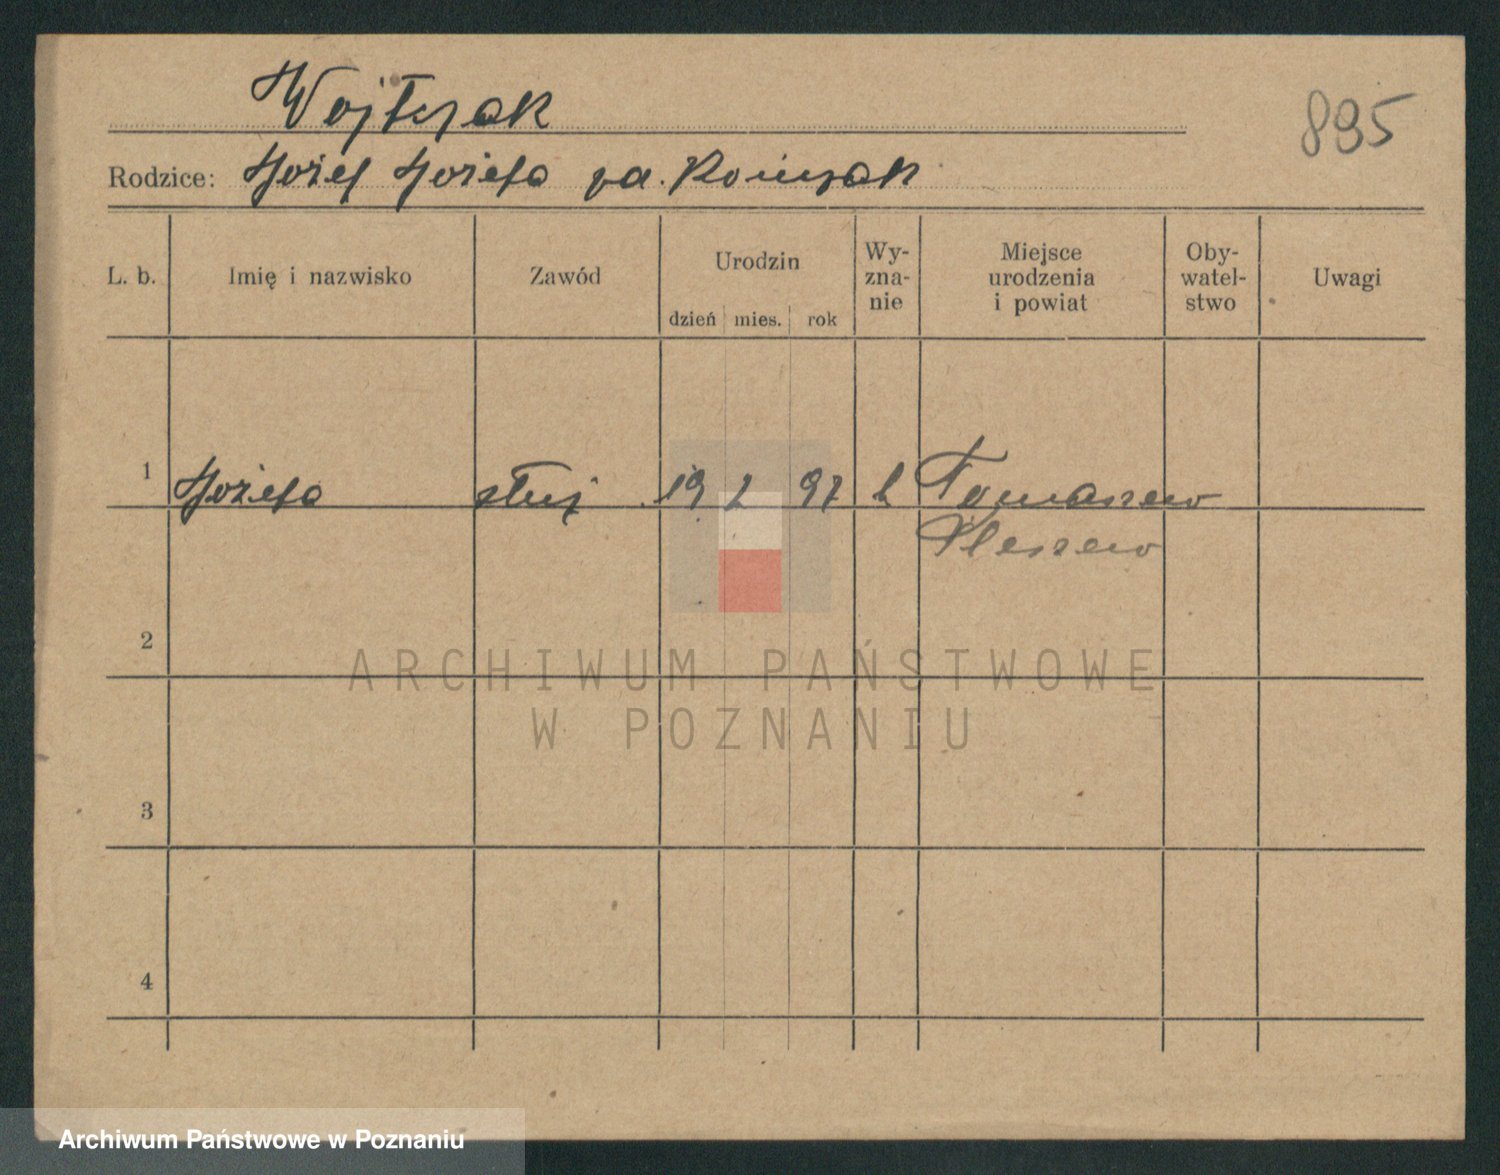 Wojtczak
895
Rodzice: Józef Józefa
L. b. Imię i nazwisko Zawód Urodzin dzień mies. rok Wy-zna-nie Miejsce urodzenia i powiat Oby-watel-stwo Uwagi
1 Józefa służ 19 2 97 k Tomaszew
Pleszew
2
ARCHIWUM PAŃSTWOWE
W POZNANIU
3
4
Archiwum Państwowe w Poznaniu